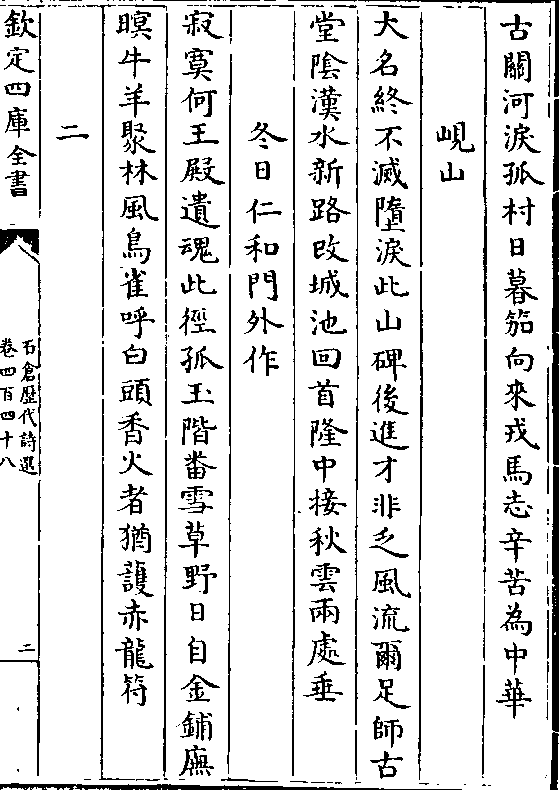 古關河淚孤村日暮笳向來戎馬志辛苦為中華
峴山
大名終不滅墮淚此山碑後進才非乏風流爾足師古
堂陰漢水新路改城池回首隆中接秋雲兩處垂
冬日仁和門外作
寂寞何王殿遺魂此徑孤玉階番雪草野日自金鋪廡
暝牛羊聚林風鳥雀呼白頭香火者猶護赤龍符
二
欽定四庫全書
石倉歷代詩選
卷四百四十八
二